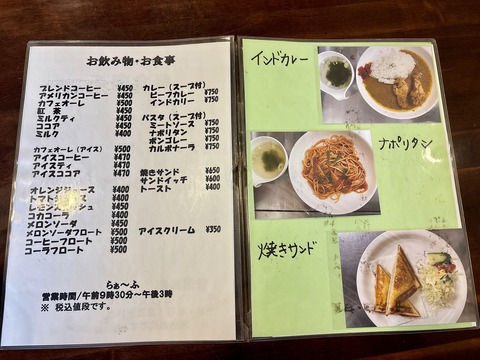 お飲み物・お食事
ブレンドコーヒー ¥450
アメリカンコーヒー ¥450
カフェオーレ ¥500
紅 茶 ¥450
ミルクティ ¥450
ココア ¥450
ミルク ¥400
カフェオーレ(アイス) ¥500
アイスコーヒー ¥470
アイスティ ¥470
アイスココア ¥470
オレンジジュース ¥400
トマトジュース ¥400
レモンスカッシュ ¥500
コカコーラ ¥400
メロンソーダ ¥400
メロンソーダフロート ¥500
コーヒーフロート ¥500
コーラフロート ¥500
カレー(スープ付)
ビーフカレー ¥750
インドカリー ¥750
パスタ(スープ付)
ミートソース ¥750
ナポリタン ¥750
ボンゴレー ¥750
カルボナーラ ¥750
焼きサンド ¥650
サンドイッチ ¥600
トースト ¥400
アイスクリーム ¥350
らぁ~ふ
営業時間/午前9時30分~午後3時
※ 税込値段です。
インドカレー
ナポリタン
焼きサンド